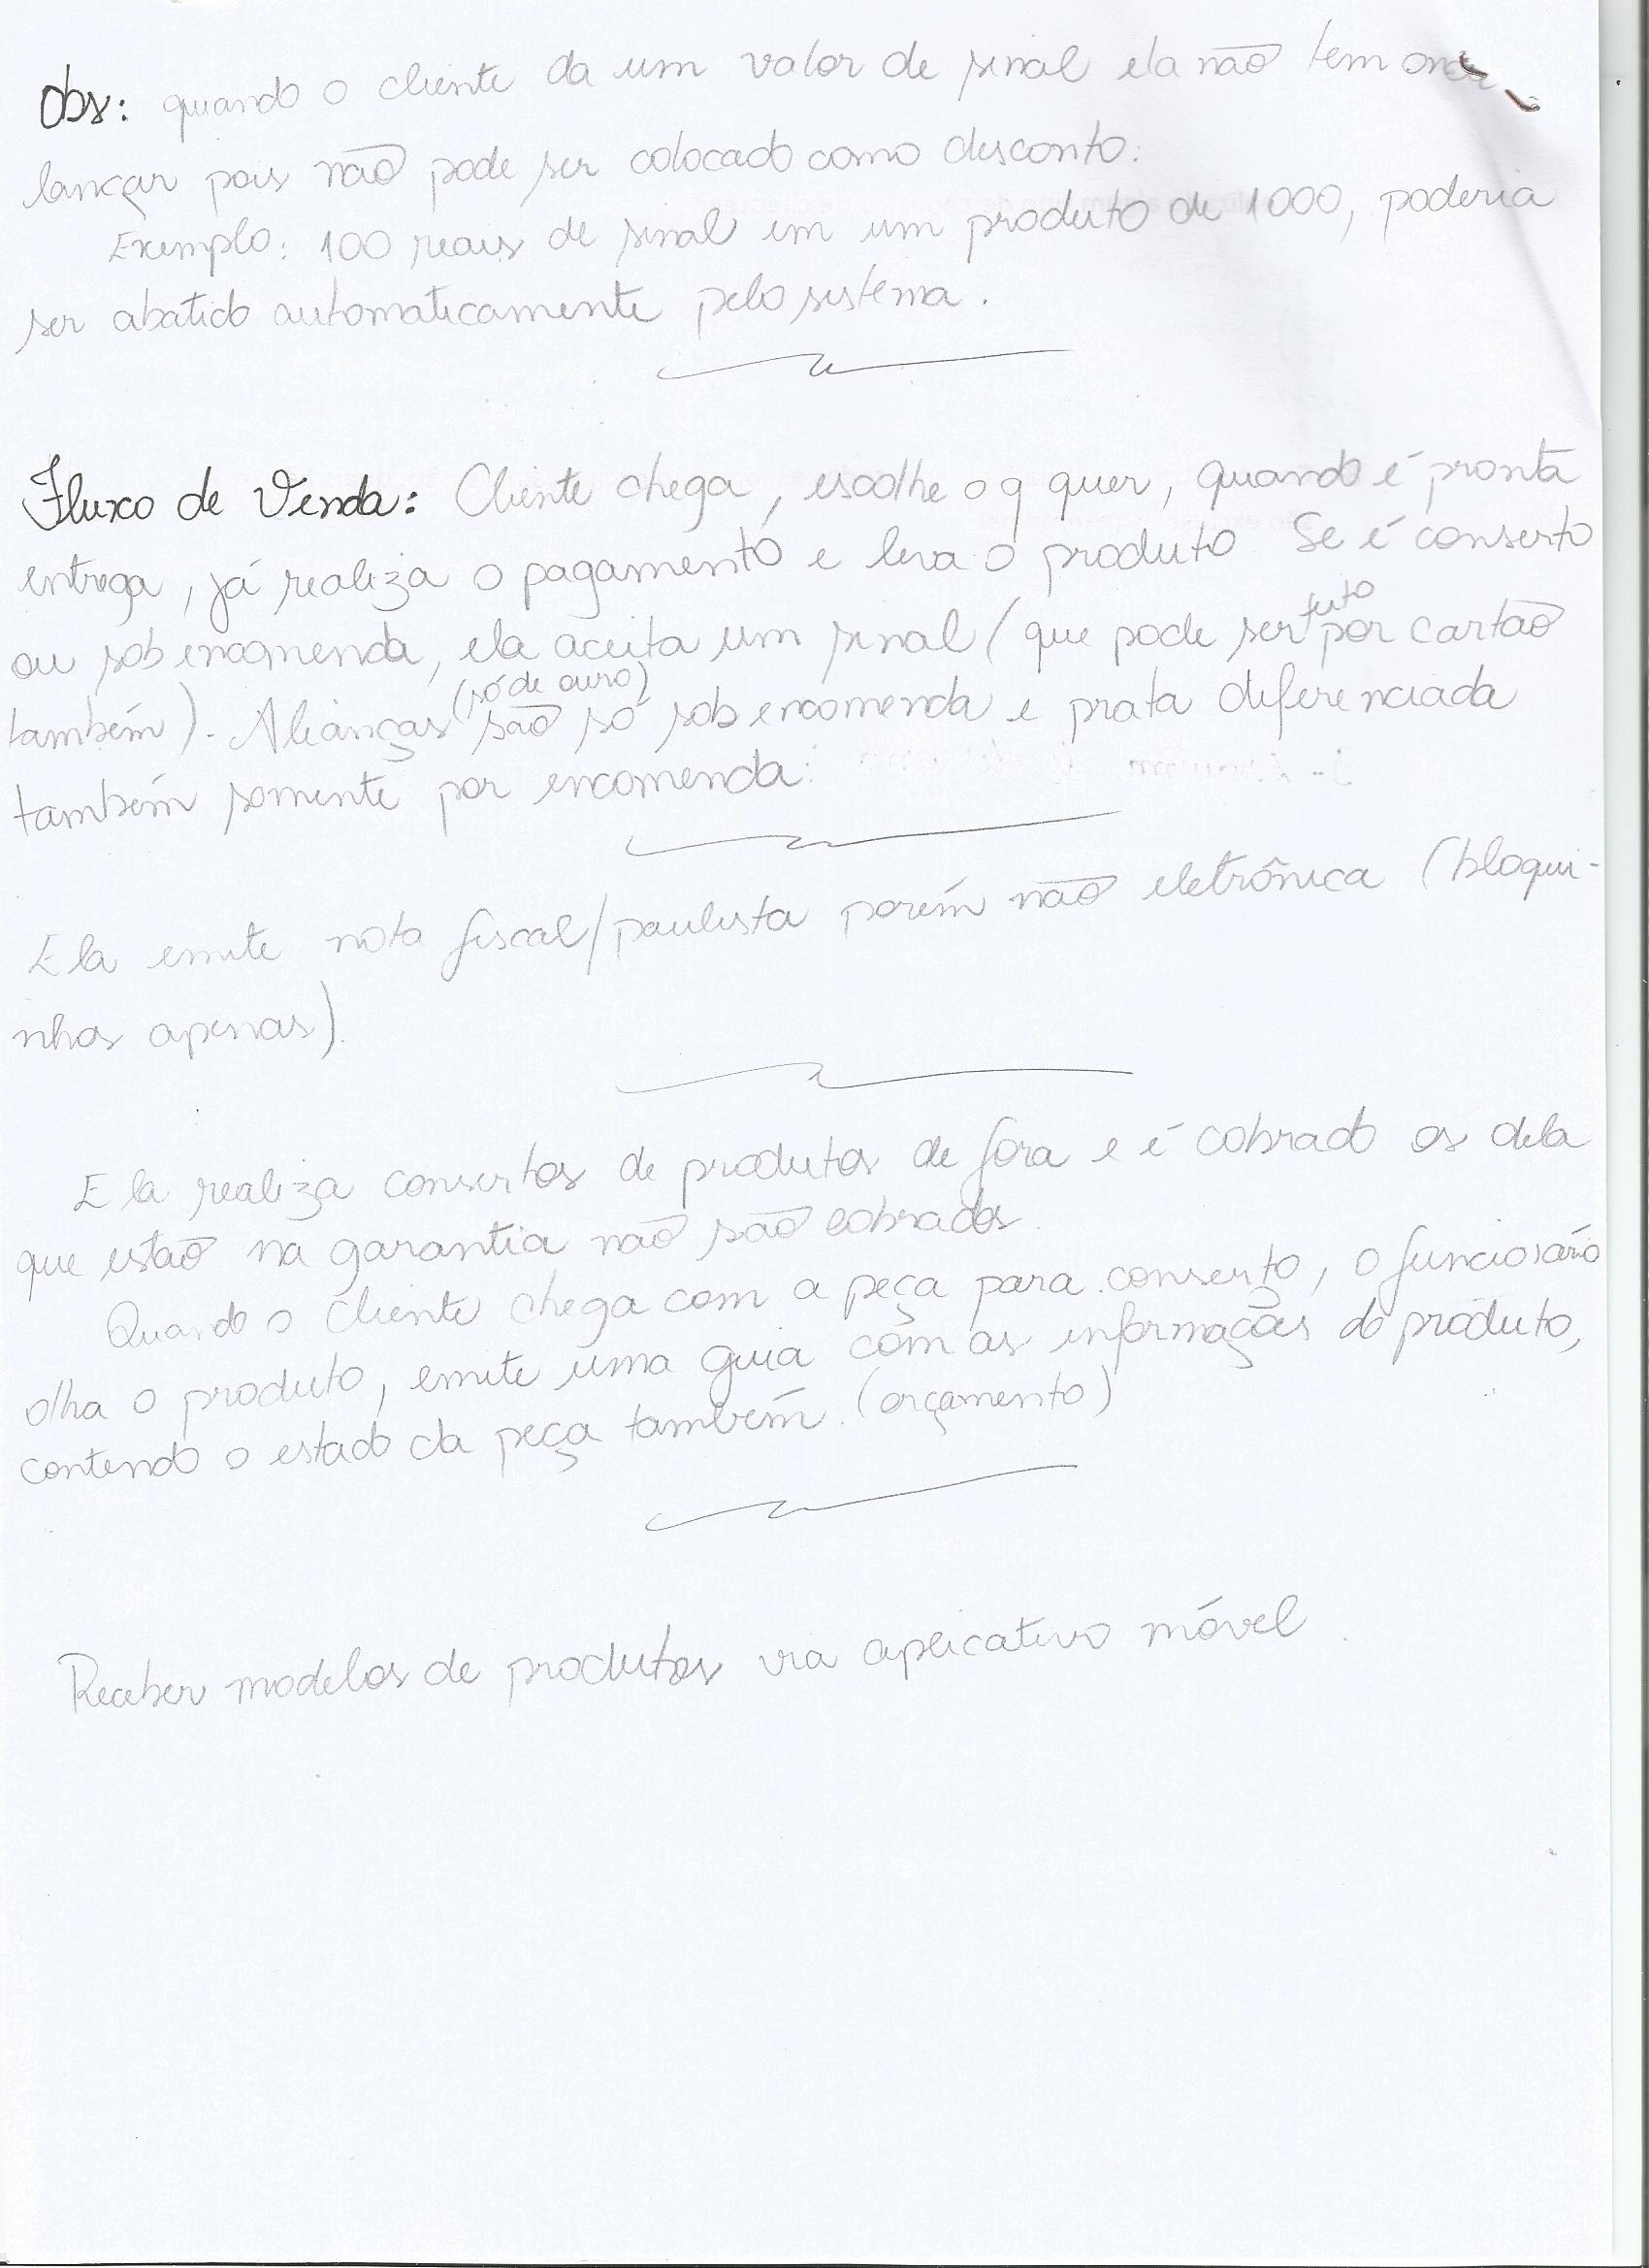 Obs: quando o cliente da um valor de sinal ela não tem onde
lançar pois não pode ser colocado como desconto.
Exemplo: 100 reais de sinal em um produto de 1000, poderia
ser abatido automaticamente pelo sistema.
Fluxo de Venda: Cliente chega, escolhe o q quer, quando é pronta
entrega, já realiza o pagamento e leva o produto. Se é conserto
ou sob encomenda, ela aceita um sinal (que pode ser feito por cartão
também). Alianças (só de ouro) são só sob encomenda e prata diferenciada
também somente por encomenda.
Ela emite nota fiscal/paulista porém não eletrônica (bloqui-
nhos apenas).
Ela realiza consertos de produtos de fora e é cobrado os dela
que estão na garantia não são cobrados.
Quando o cliente chega com a peça para conserto, o funcionário
olha o produto, emite uma guia com as informações do produto,
contendo o estado da peça também. (orçamento)
Receber modelos de produtos via aplicativo móvel.